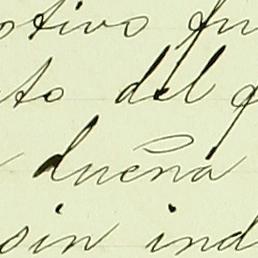 otivo fu
to del g
dueña
sin ind